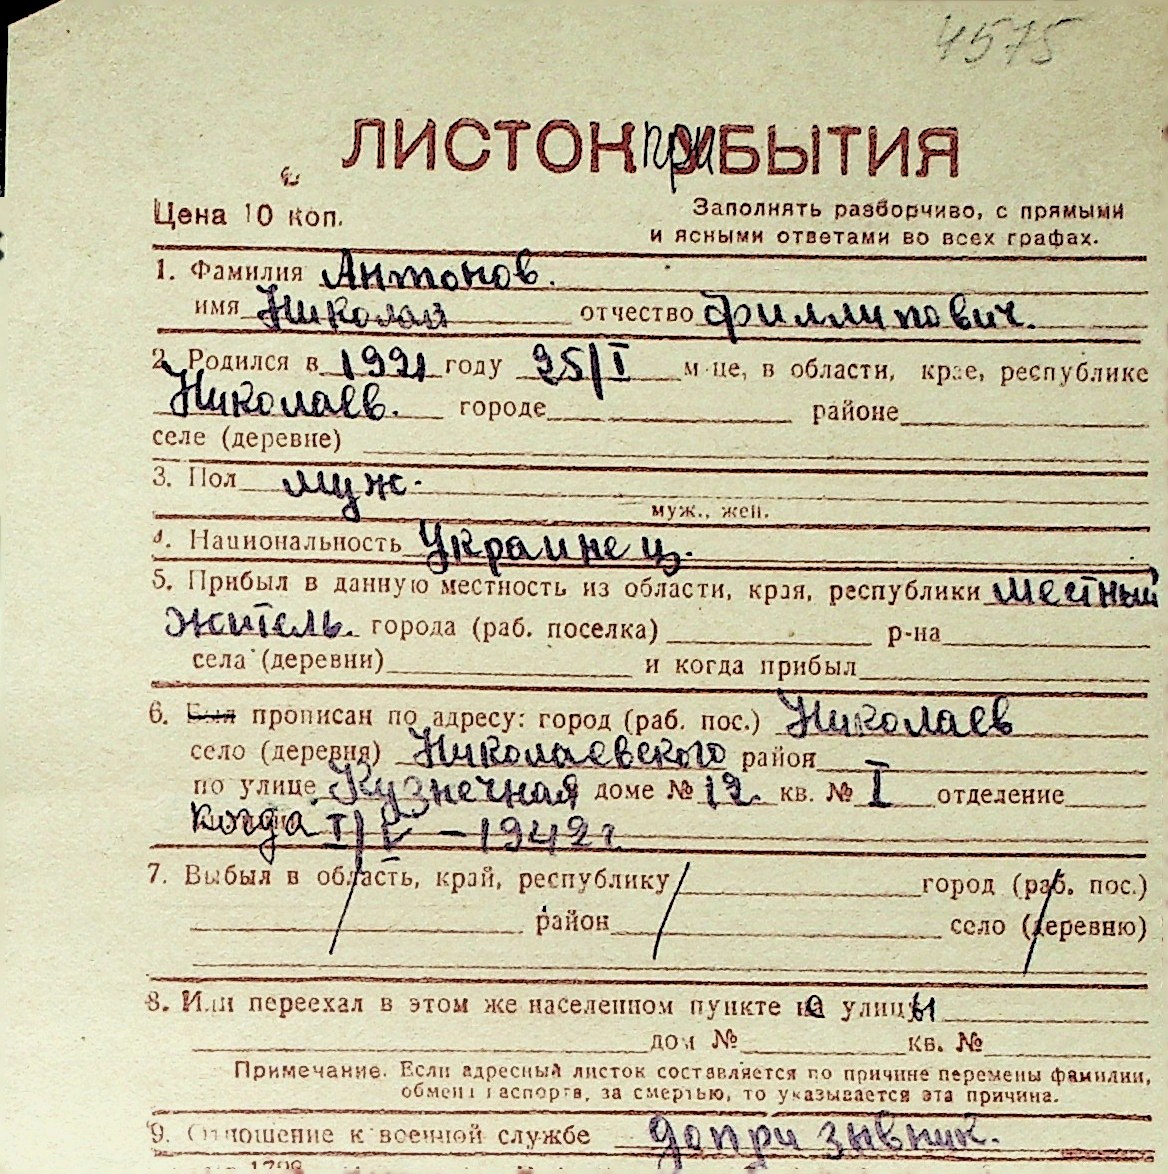 4575
ЛИСТОК ПРИБЫТИЯ
Цена 10 коп.
Заполнять разборчиво, с прямыми
и ясными ответами во всех графах.
1. Фамилия Антонов.
имя Николай отчество Филлипович.
2. Родился в 1921 году 25/I м-це, в области, крае, республике
Николаев. городе районе
селе (деревне)
3. Пол муж.
муж., жен.
4. Национальность Украинец.
5. Прибыл в данную местность из области, края, республики местный
житель. города (раб. поселка) р-на
села (деревни) и когда прибыл
6. Был прописан по адресу: город (раб. пос.) Николаев
село (деревня) Николаевского район
по улице Кузнечная доме № 12. кв. № I отделение
когда I/V - 1942 г.
7. Выбыл в область, край, республику город (раб. пос.)
район село (деревню)
8. Или переехал в этом же населенном пункте с улицы
дом № кв. №
Примечание. Если адресный листок составляется по причине перемены фамилии,
обмена паспорта, за смертью, то указывается эта причина.
9. Отношение к военной службе допризывник.